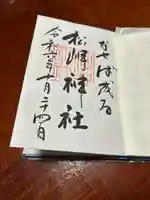 なせば成る
松岬神社
令和六年十月二十四日